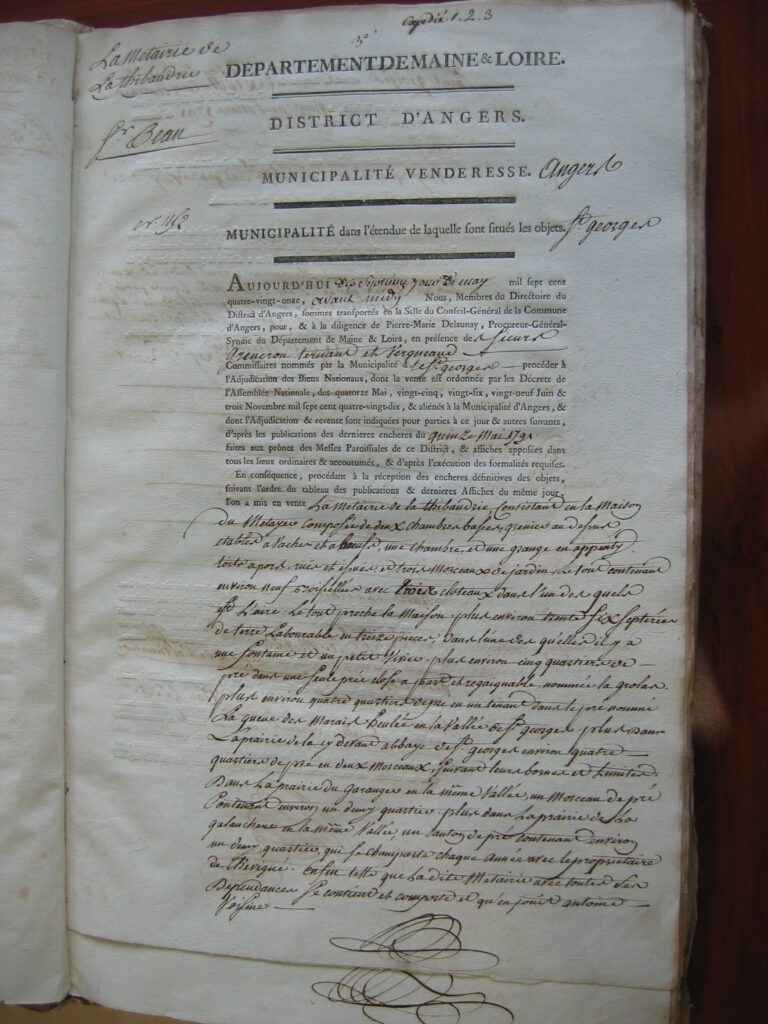 Expedié 1. 2. 3
3°
La Metairie de
La thibaudrie
DÉPARTEMENT DE MAINE & LOIRE.
DISTRICT D'ANGERS.
Sr Bean
MUNICIPALITÉ VENDERESSE. Angers
MUNICIPALITÉ dans l'étendue de laquelle sont situés les objets. St georges
AUJOURD'HUI dix Septieme jour de may mil sept cent
quatre-vingt-onze, avant midy Nous, Membres du Directoire du
District d'Angers, sommes transportés en la Salle du Conseil-Général de la Commune
d'Angers, pour, & à la diligence de Pierre-Marie Delaunay, Procureur-Général-
Syndic du Département de Maine & Loire, en présence de Sieurs
et Vergneaud
Commissaires nommés par la Municipalité de St georges procéder à
l'Adjudication des Biens Nationaux, dont la vente est ordonnée par les Décrets de
l'Assemblée Nationale, des quatorze Mai, vingt-cinq, vingt-six, vingt-neuf Juin &
trois Novembre mil sept cent quatre-vingt-dix, & aliénés à la Municipalité d'Angers, &
dont l'Adjudication & revente sont indiquées pour parties à ce jour & autres suivants,
d'après les publications des dernieres encheres du quinze Mai 1791
faites aux prônes des Messes Paroissiales de ce District, & affiches apposées dans
tous les lieux ordinaires & accoutumés, & d'après l'exécution des formalités requises.
En conséquence, procédant à la réception des encheres définitives des objets,
suivant l'ordre du tableau des publications & dernieres Affiches du même jour,
l'on a mis en vente La Metairie de la thibaudrie, Consistant en la Maison
du Metayer Composée de deux chambres basses, grenier au dessus
etables a vaches et a boeufs, une chambre, et une grange en appenty,
toits a porc, rues et issues, et trois Morceaux de jardin. Le tout contenant
environ neuf Boisselées avec trois cloteaux dans l'un des quels
est L'aire. Le tout proche la Maison plus environ trente six Septerées
de terre Labourable en treize pieces, dans l'une des quelles il y a
une fontaine et un petit Vivier plus environ cinq quartiers de
pré dans une seule piece close a part et regaignable nommée la grolas
plus environ quatre quartiers de pré en un tenant dans le pré nommé
La queue des Marais en la Vallée de St georges plus dans
La prairie de la cy devant abbaye de St georges environ quatre
quartiers de pré en deux Morceaux, suivant leurs bornes et Limites.
Dans La prairie du garanger en la même Vallée, un Morceau de pré
Contenant environ un demy quartier. plus dans La prairie de La
galanchere en la même Vallée, un canton de pré contenant environ
un demy quartier, qui se champarte chaque année avec le propriétaire
de Chevigné. enfin telle que La dite Metairie avec toutes Ses
Dependances Se contient et comporte et qu'en jouit antoine
Voisine